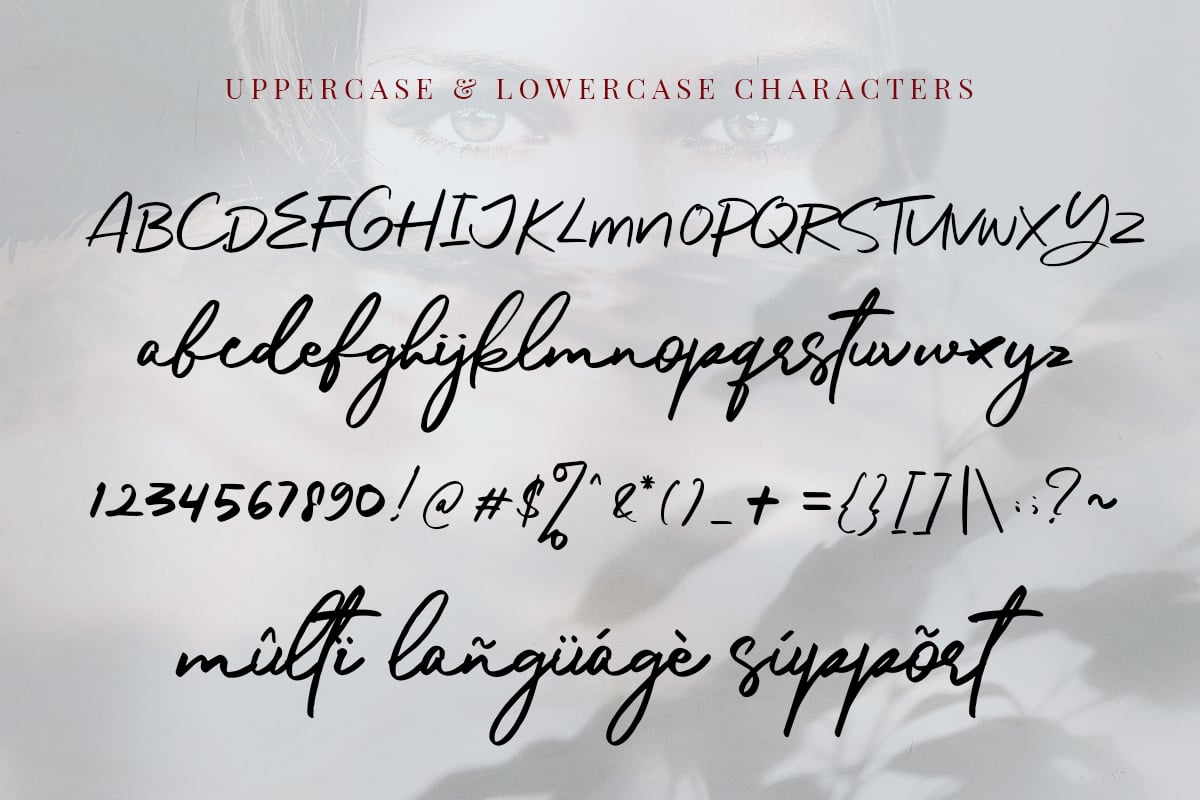 UPPERCASE & LOWERCASE CHARACTERS
ABCDEFGHIJKLmnOPQRSTUVWXYz
abcdefghijklmnopqrstuvwxyz
1234567890!@#$%^&*()_+={}[]|\:;?~
mûltï lañgüágè súppõrt